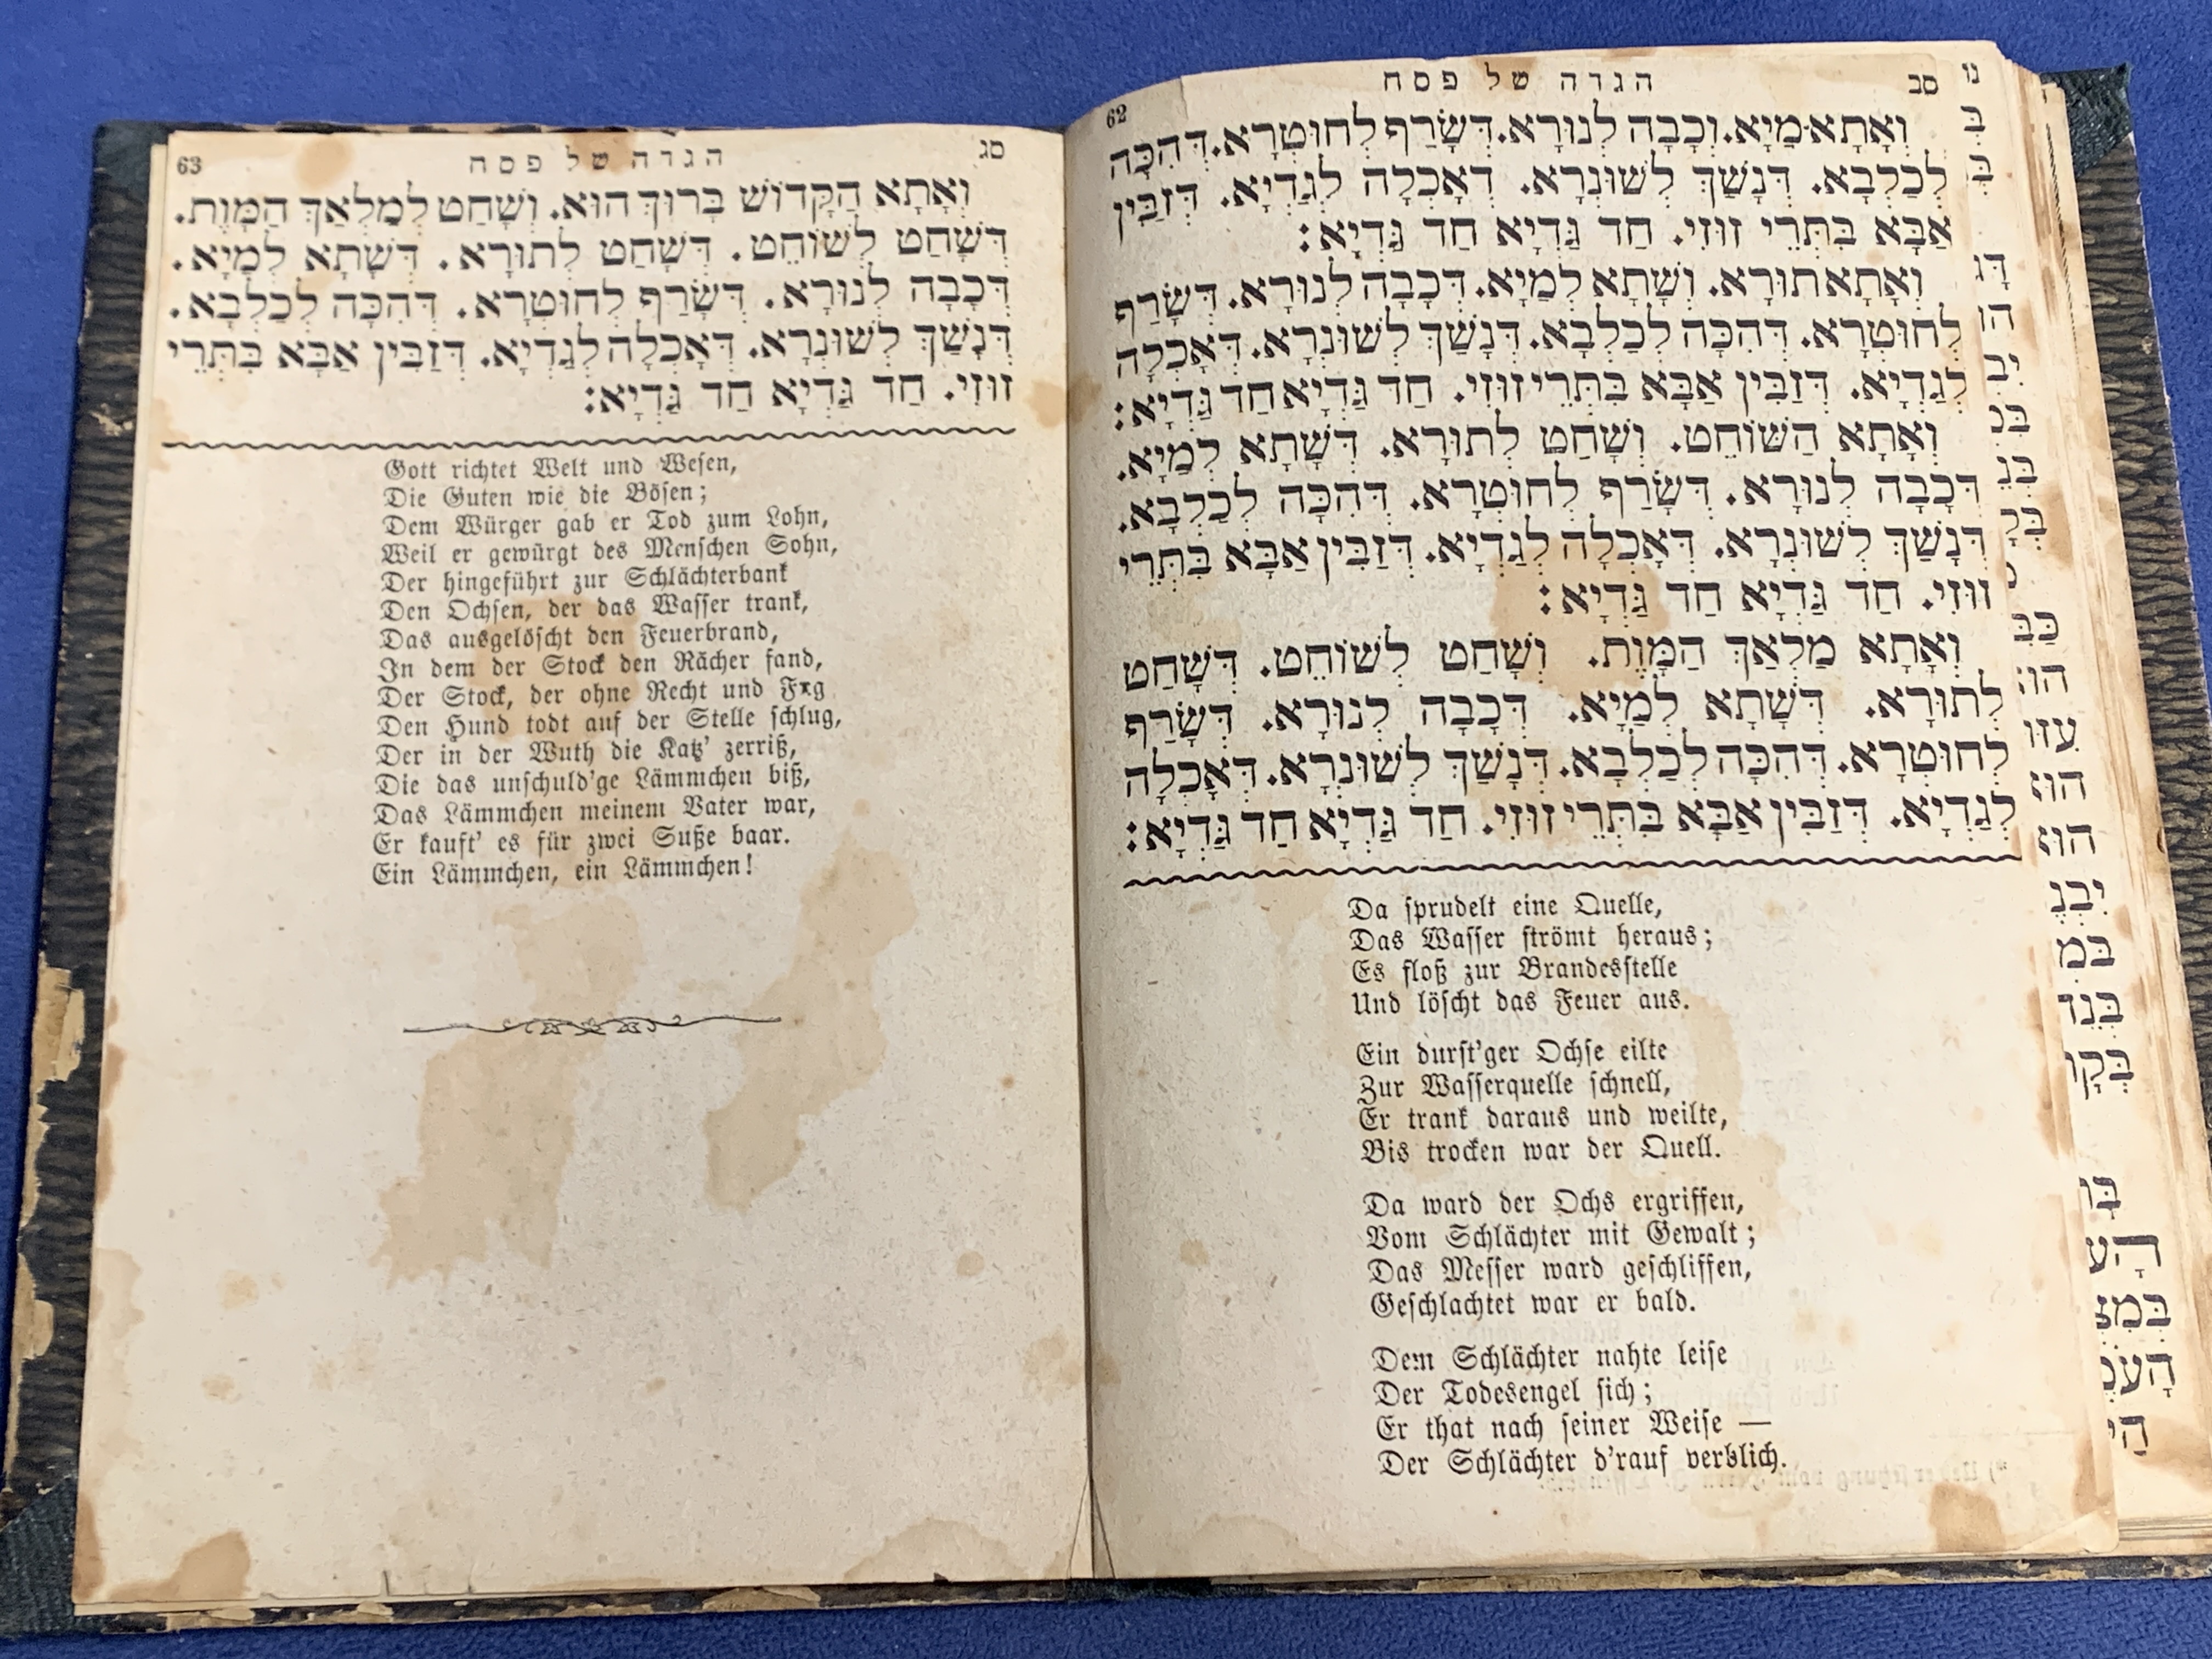 62 הגדה של פסח סב
וְאָתָא מַיָא. וְכָבָה לְנוּרָא. דְּשָׂרַף לְחוּטְרָא. דְּהִכָּה
לְכַלְבָּא. דְּנָשַׁךְ לְשׁוּנְרָא. דְאָכְלָה לְגַדְיָא. דְּזַבִּין
אַבָּא בִּתְּרֵי זוּזֵי. חַד גַּדְיָא חַד גַּדְיָא:
וְאָתָא תוֹרָא. וְשָׁתָא לְמַיָא. דְּכָבָה לְנוּרָא. דְּשָׂרַף
לְחוּטְרָא. דְּהִכָּה לְכַלְבָּא. דְּנָשַׁךְ לְשׁוּנְרָא. דְּאָכְלָה
לְגַדְיָא. דְּזַבִּין אַבָּא בִּתְּרֵי זוּזֵי. חַד גַּדְיָא חַד גַּדְיָא:
וְאָתָא הַשּׁוֹחֵט. וְשָׁחַט לְתוֹרָא. דְּשָׁתָא לְמַיָא.
דְּכָבָה לְנוּרָא. דְּשָׂרַף לְחוּטְרָא. דְּהִכָּה לְכַלְבָּא.
דְּנָשַׁךְ לְשׁוּנְרָא. דְּאָכְלָה לְגַדְיָא. דְּזַבִּין אַבָּא בִּתְּרֵי
זוּזֵי. חַד גַּדְיָא חַד גַּדְיָא:
וְאָתָא מַלְאַךְ הַמָּוֶת. וְשָׁחַט לְשׁוֹחֵט. דְּשָׁחַט
לְתוֹרָא. דְּשָׁתָא לְמַיָא. דְּכָבָה לְנוּרָא. דְּשָׂרַף
לְחוּטְרָא. דְּהִכָּה לְכַלְבָּא. דְּנָשַׁךְ לְשׁוּנְרָא. דְּאָכְלָה
לְגַדְיָא. דְּזַבִּין אַבָּא בִּתְּרֵי זוּזֵי. חַד גַּדְיָא חַד גַּדְיָא:
Da sprudelt eine Quelle,
Das Wasser strömt heraus;
Es floß zur Brandesstelle
Und löscht das Feuer aus.
Ein durst'ger Ochse eilte
Zur Wasserquelle schnell,
Er trank daraus und weilte,
Bis trocken war der Quell.
Da ward der Ochs ergriffen,
Vom Schlächter mit Gewalt;
Das Messer ward geschliffen,
Geschlachtet war er bald.
Dem Schlächter nahte leise
Der Todesengel sich;
Er that nach seiner Weise —
Der Schlächter d'rauf verblich.
63 הגדה של פסח סג
וְאָתָא הַקָּדוֹשׁ בָּרוּךְ הוּא. וְשָׁחַט לְמַלְאַךְ הַמָּוֶת.
דְּשָׁחַט לְשׁוֹחֵט. דְּשָׁחַט לְתוֹרָא. דְּשָׁתָא לְמַיָא.
דְּכָבָה לְנוּרָא. דְּשָׂרַף לְחוּטְרָא. דְּהִכָּה לְכַלְבָּא.
דְּנָשַׁךְ לְשׁוּנְרָא. דְּאָכְלָה לְגַדְיָא. דְּזַבִּין אַבָּא בִּתְּרֵי
זוּזֵי. חַד גַּדְיָא חַד גַּדְיָא:
Gott richtet Welt und Wesen,
Die Guten wie die Bösen;
Dem Würger gab er Tod zum Lohn,
Weil er gewürgt des Menschen Sohn,
Der hingeführt zur Schlächterbank
Den Ochsen, der das Wasser trank,
Das ausgelöscht den Feuerbrand,
In dem der Stock den Rächer fand,
Der Stock, der ohne Recht und
Den Hund todt auf der Stelle schlug,
Der in der Wuth die Katz' zerriß,
Die das unschuld'ge Lämmchen biß,
Das Lämmchen meinem Vater war,
Er kauft' es für zwei Suße baar.
Ein Lämmchen, ein Lämmchen!